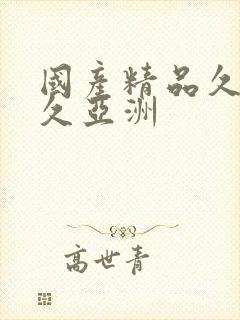 國産精品久
久亞洲
高世青